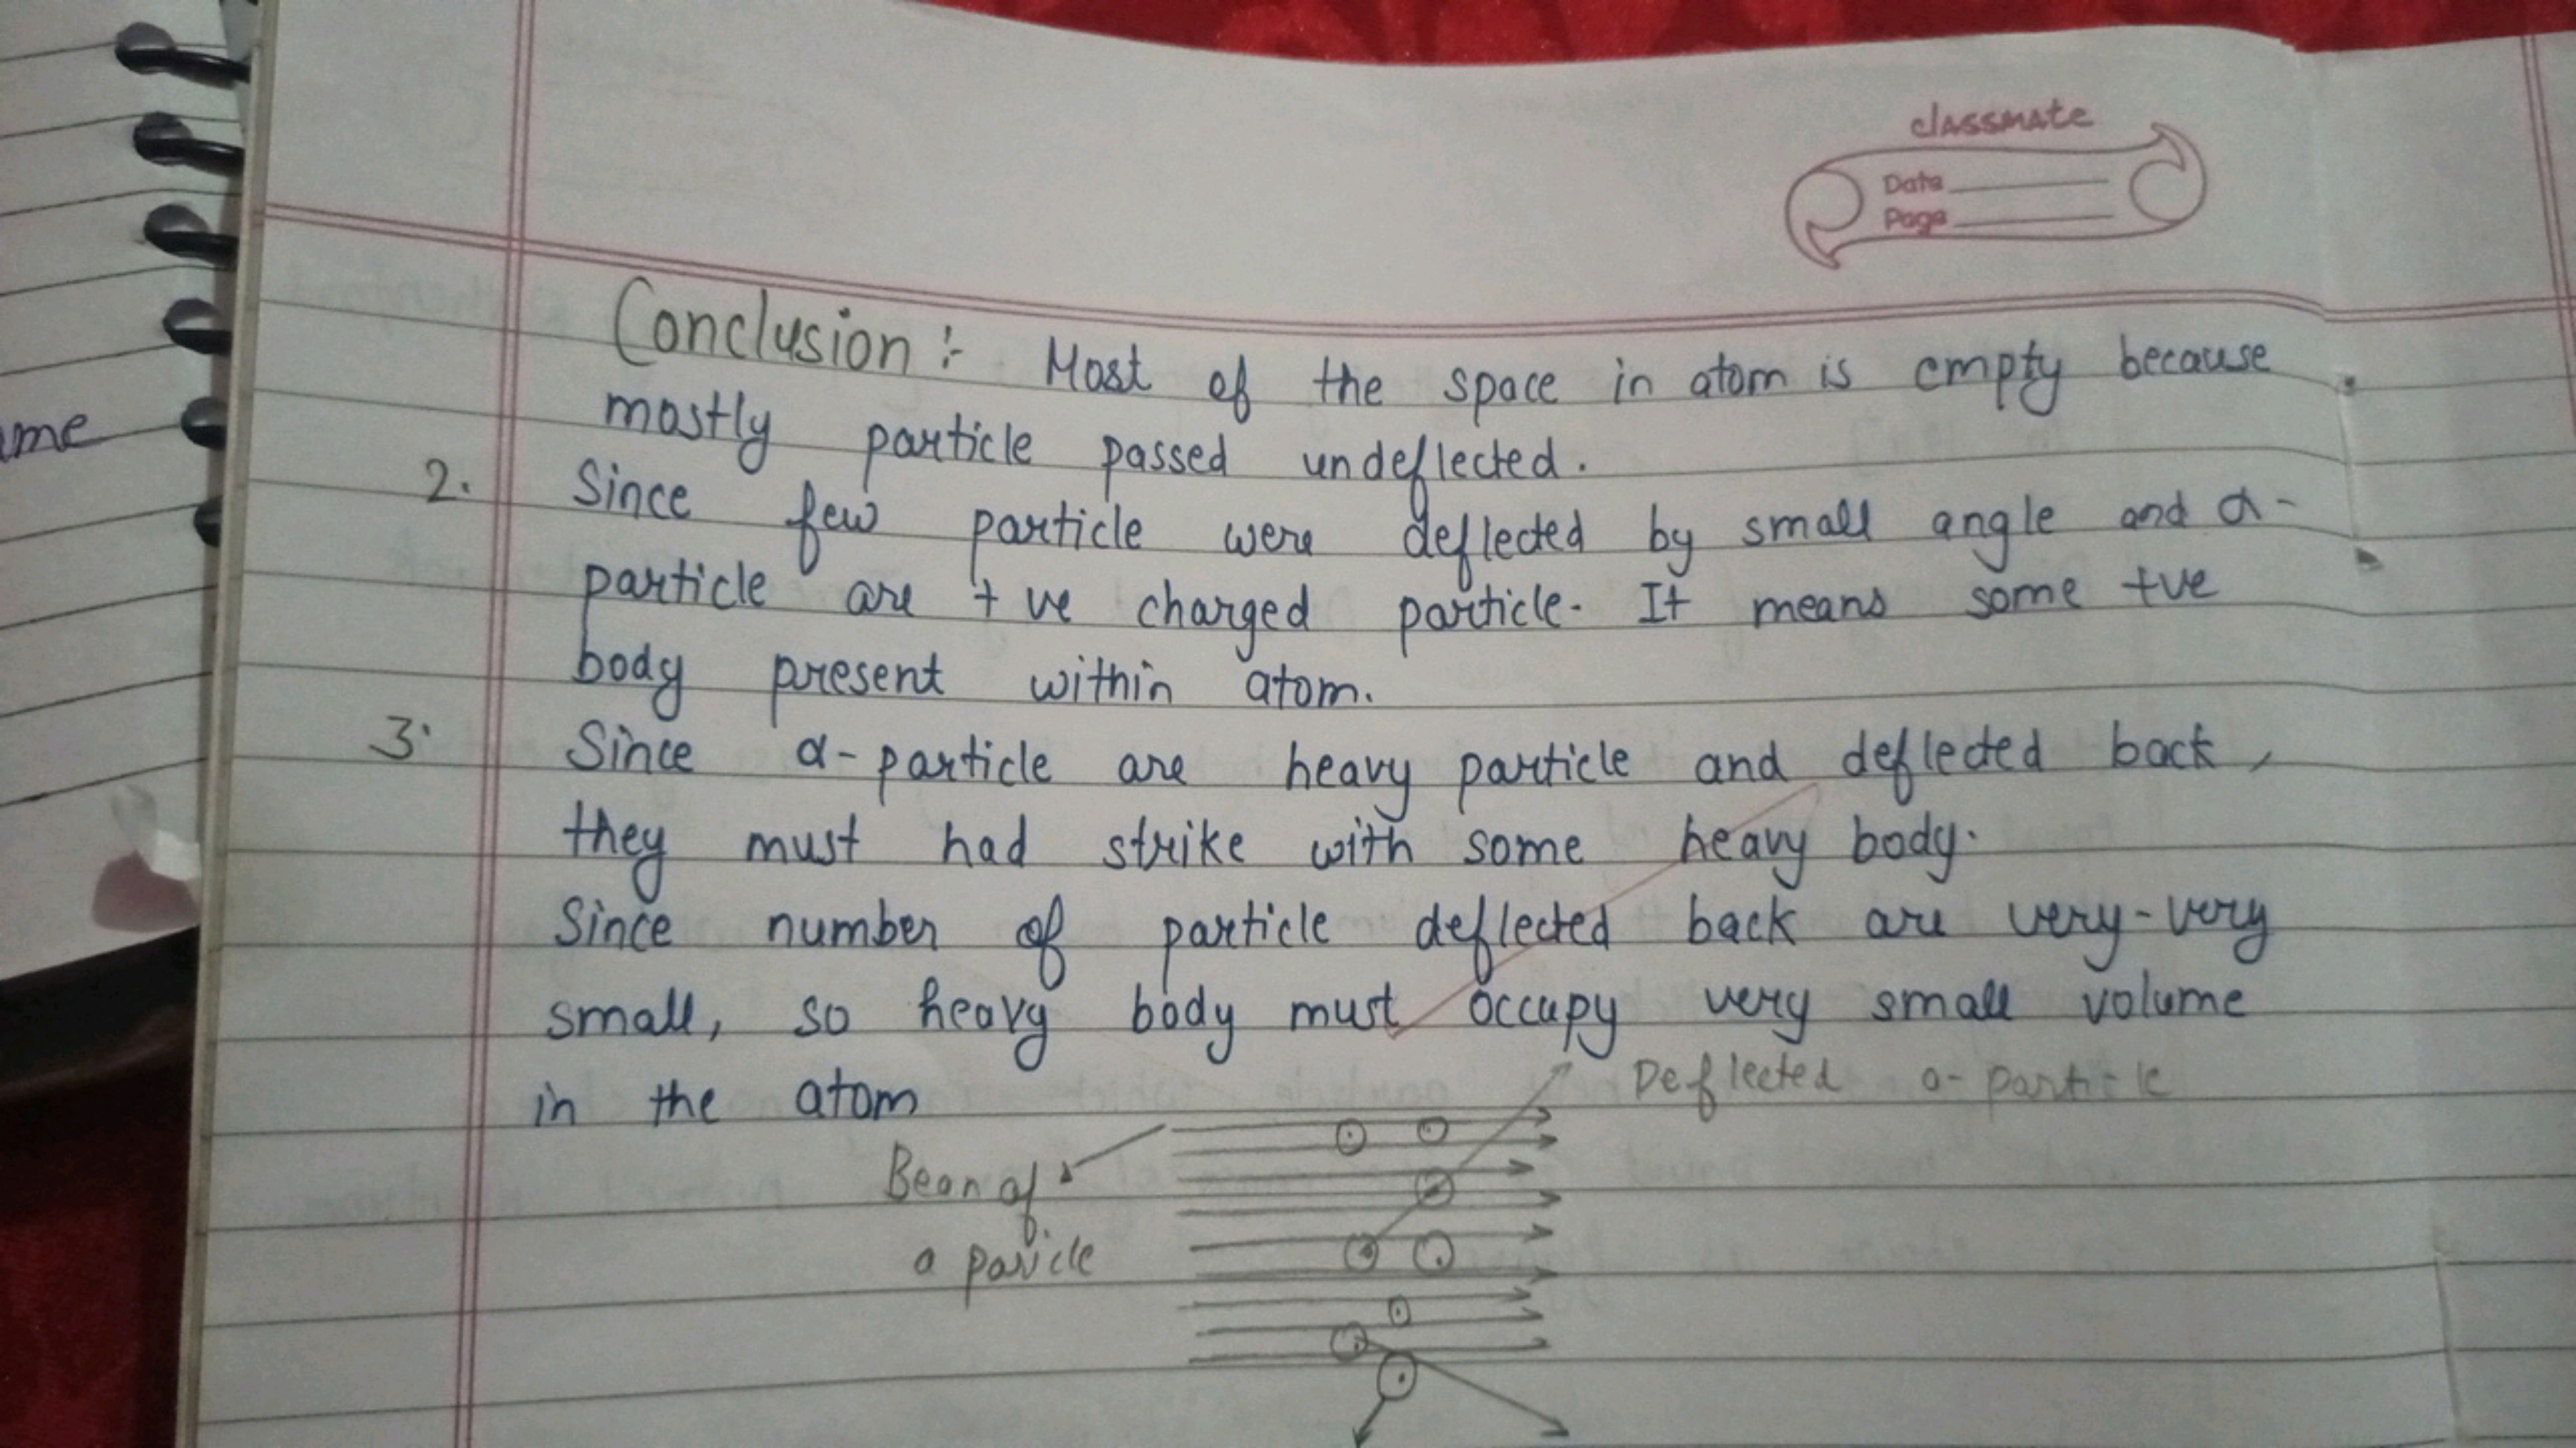 classmate
Date
Page
Conclusion :- Most of the space in atom is empty because
mostly particle passed undeflected.
2. Since few particle were deflected by small angle and α-
particle are +ve charged particle. It means some +ve
body present within atom.
3. Since α-particle are heavy particle and deflected back,
they must had strike with some heavy body.
Since number of particle deflected back are very-very
small, so heavy body must occupy very small volume
in the atom
Deflected α-particle
Bean of
a paricle
ume